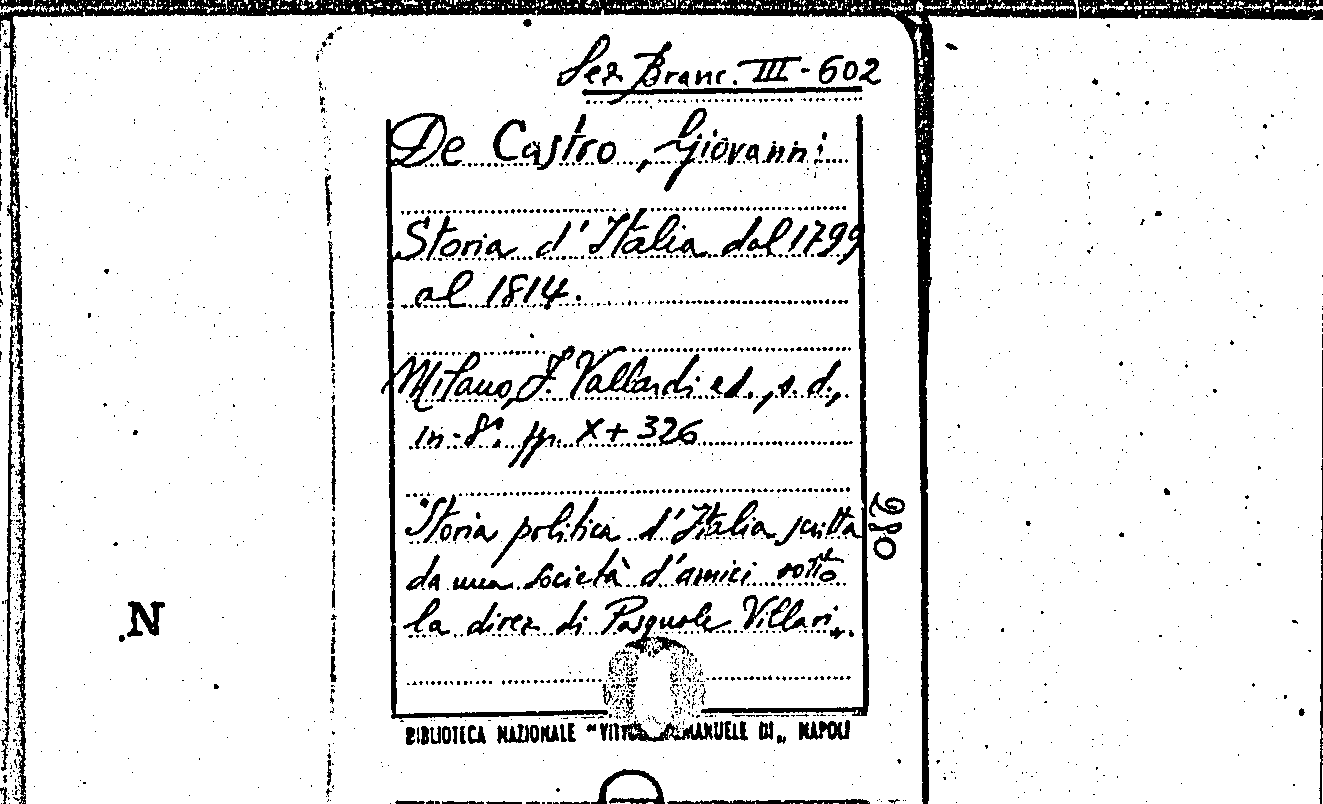 Sez Branc. III - 602
De Castro, Giovanni
Storia d'Italia dal 1799
al 1814.
Milano, F. Vallardi ed., s.d.,
in-8°. pp. X + 326
"Storia politica d'Italia scritta
da una società d'amici sotto
la direz. di Pasquale Villari„.
280
N
BIBLIOTECA NAZIONALE "EMANUELE III„ NAPOLI